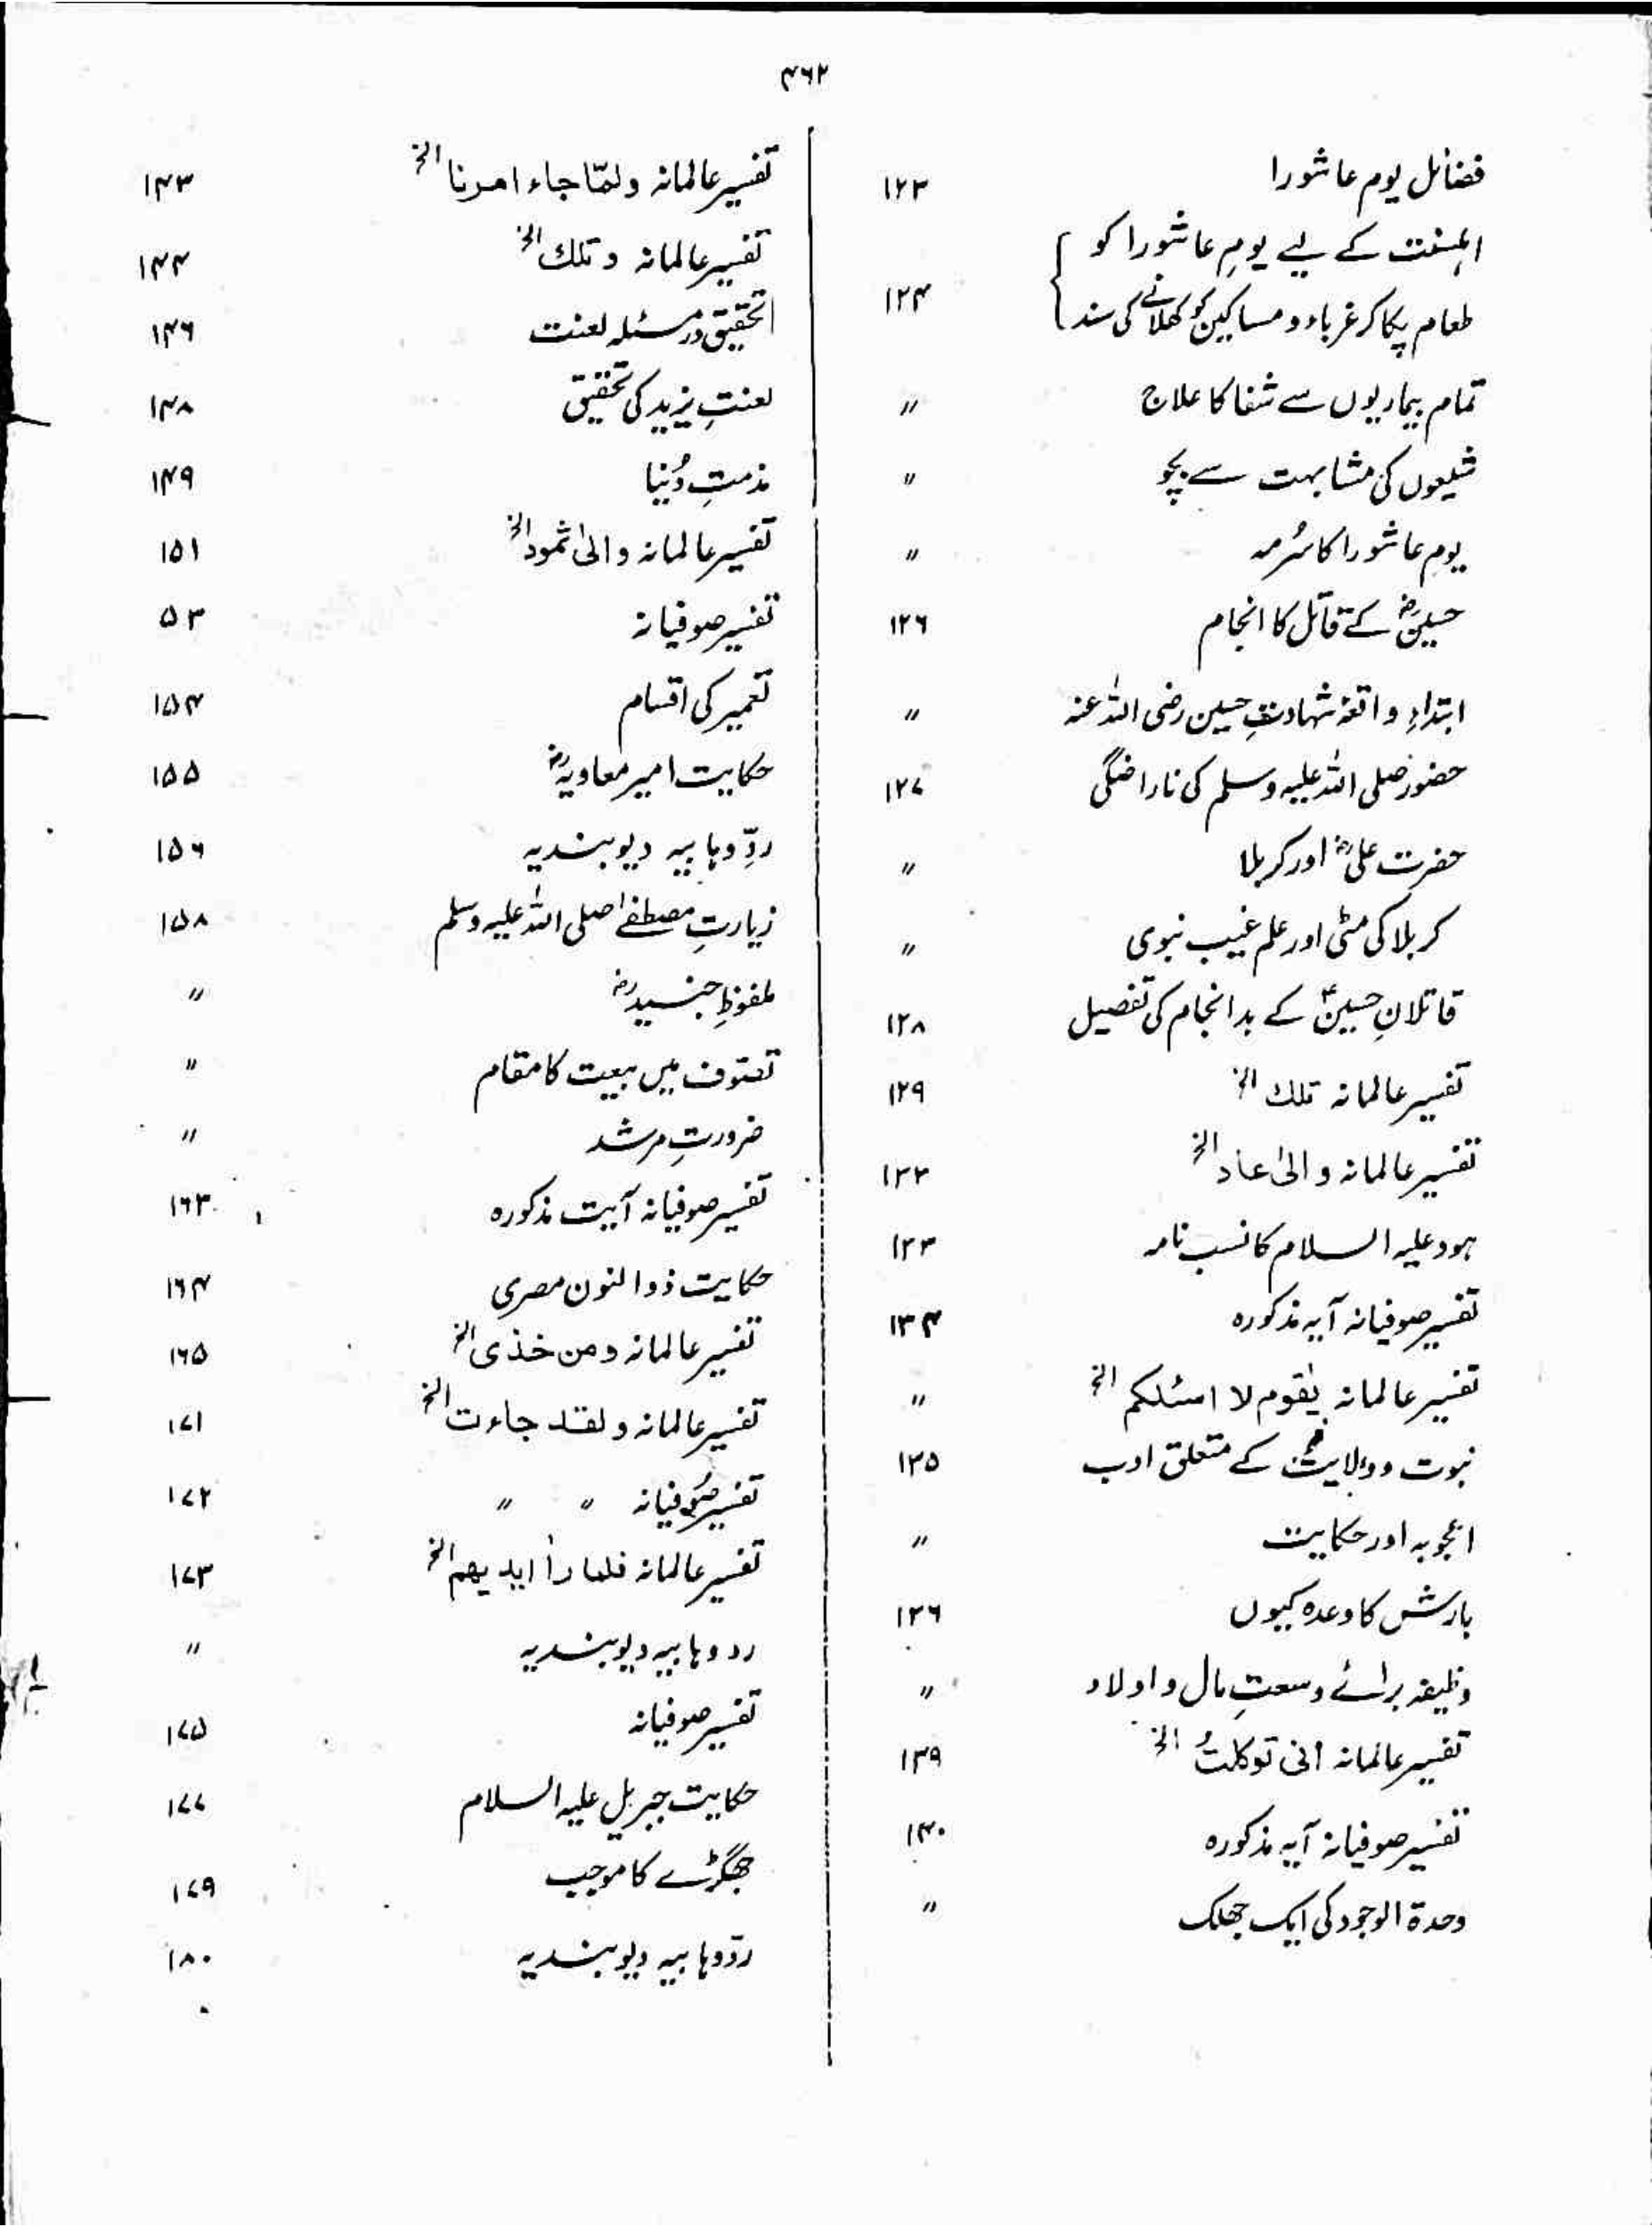 ۴۶۲
فضائل یوم عاشورا ۱۲۳
اہلسنّت کے لیے یومِ عاشورا کو
طعام پکا کر غرباء و مساکین کو کھلانے کی سند ۱۲۴
تمام بیماریوں سے شفا کا علاج ״
شیعوں کی مشابہت سے بچو ״
یومِ عاشورا کا سُرمہ ״
حسینؓ کے قاتل کا انجام ۱۲۶
ابتداءِ واقعۂ شہادتِ حسین رضی اللہ عنہ ״
حضور صلی اللہ علیہ وسلم کی ناراضگی ۱۲۷
حضرت علیؓ اور کربلا ״
کربلا کی مٹی اور علم غیب نبوی ״
قاتلانِ حسینؓ کے بد انجام کی تفصیل ۱۲۸
تفسیر عالمانہ تلك الخ ۱۲۹
تفسیر عالمانہ و الیٰ عاد الخ ۱۳۲
ہود علیہ السلام کا نسب نامہ ۱۳۳
تفسیر صوفیانہ آیہ مذکورہ ۱۳۴
تفسیر عالمانہ یٰقوم لا اسئلکم الخ ״
نبوت و ولایت کے متعلق ادب ۱۳۵
اعجوبہ اور حکایت ״
بارش کا وعدہ کیوں ۱۳۶
وظیفہ برائے وسعتِ مال و اولاد ״
تفسیر عالمانہ انی توکلتُ الخ ۱۳۹
تفسیر صوفیانہ آیہ مذکورہ ۱۴۰
وحدۃ الوجود کی ایک جھلک ״
تفسیر عالمانہ ولمّا جاء امرنا الخ ۱۴۳
تفسیر عالمانہ و تلك الخ ۱۴۴
تحقیق در مسئلہ لعنت ۱۴۶
لعنتِ یزید کی تحقیق ۱۴۸
مذمتِ دُنیا ۱۴۹
تفسیر عالمانہ و الیٰ ثمود الخ ۱۵۱
تفسیر صوفیانہ ۵۳
تعمیر کی اقسام ۱۵۴
حکایت امیر معاویہؓ ۱۵۵
ردِّ وہابیہ دیوبندیہ ۱۵۶
زیارتِ مصطفےٰ صلی اللہ علیہ وسلم ۱۵۸
ملفوظِ جنیدؓ ״
تصوّف میں بیعت کا مقام ״
ضرورتِ مرشد ״
تفسیر صوفیانہ آیت مذکورہ ۱۶۳
حکایت ذوالنون مصری ۱۶۴
تفسیر عالمانہ ومن خذی الخ ۱۶۵
تفسیر عالمانہ و لقد جاءت الخ ۱۷۱
تفسیر صُوفیانہ ״ ״ ۱۷۲
تفسیر عالمانہ فلما رأ ایدیھم الخ ۱۷۳
رد وہابیہ دیوبندیہ ״
تفسیر صوفیانہ ۱۷۵
حکایت جبریل علیہ السلام ۱۷۷
جھگڑے کا موجب ۱۷۹
ردّ وہابیہ دیوبندیہ ۱۸۰